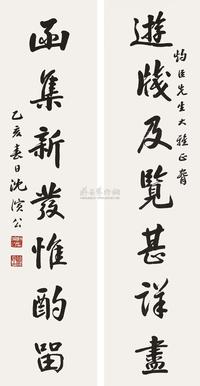 遊牋及覽甚詳盡
灼臣先生大雅正腕
函集新發惟酌留
乙亥春日沈演公